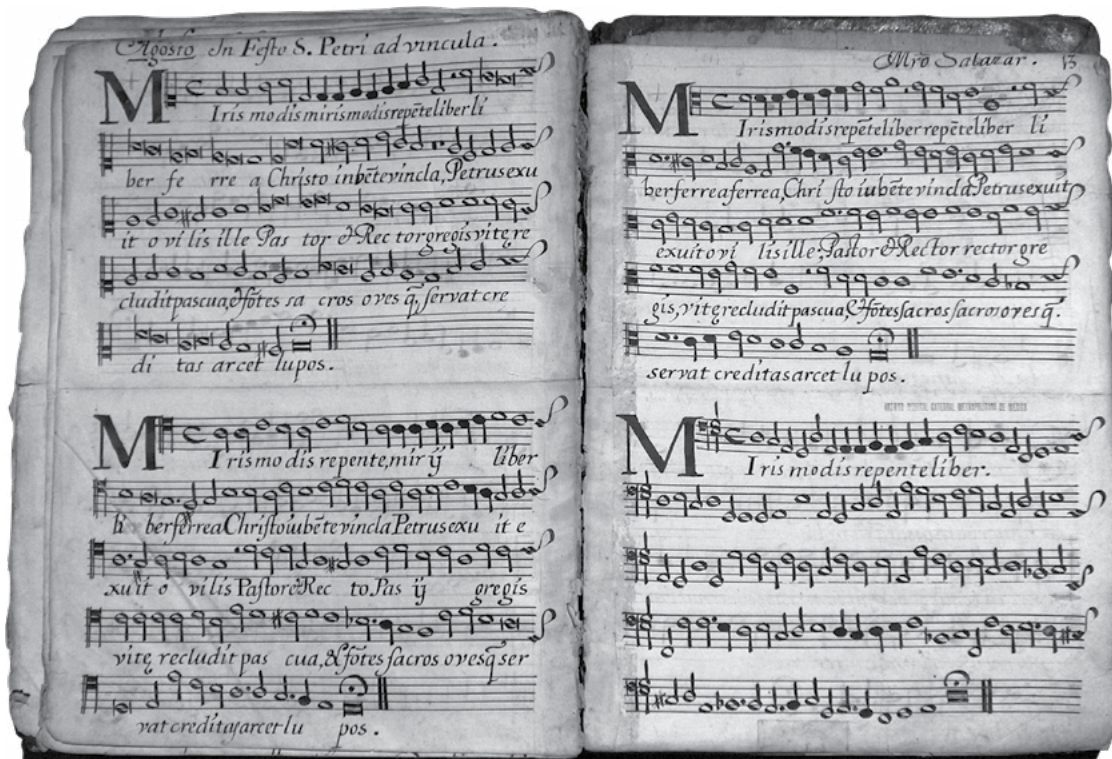 Agosto In Festo S. Petri ad vincula.
MIris modis mirismodis repēte liber li
ber fe rre a Christo iubēte vincla, Petrus exu
it o vi lis ille Pas tor & Rec tor gregis vitę re
cludit pascua, & fōtes sa cros oves q̄, servat cre
di tas arcet lupos.
MIris mo dis repente, mir ij liber
li ber ferrea Christo iubēte vincla Petrus exu it e
xu it o vi lis Pastor & Rec to. Pas ij gregis
vitę recludit pas cua, & fōtes sacros oves q̄ ser
vat creditas arcet lu pos.
Mro Salazar. 13
MIris modis repēte liber repēte liber li
ber ferrea ferrea, Chri sto iubēte vincla Petrus exuit
exuit o vi lis ille, Pastor & Rector rector gre
gis, vitę recludit pascua, & fōtes sacros sacros oves q̄.
servat creditas arcet lu pos.
MIris modis repente liber.